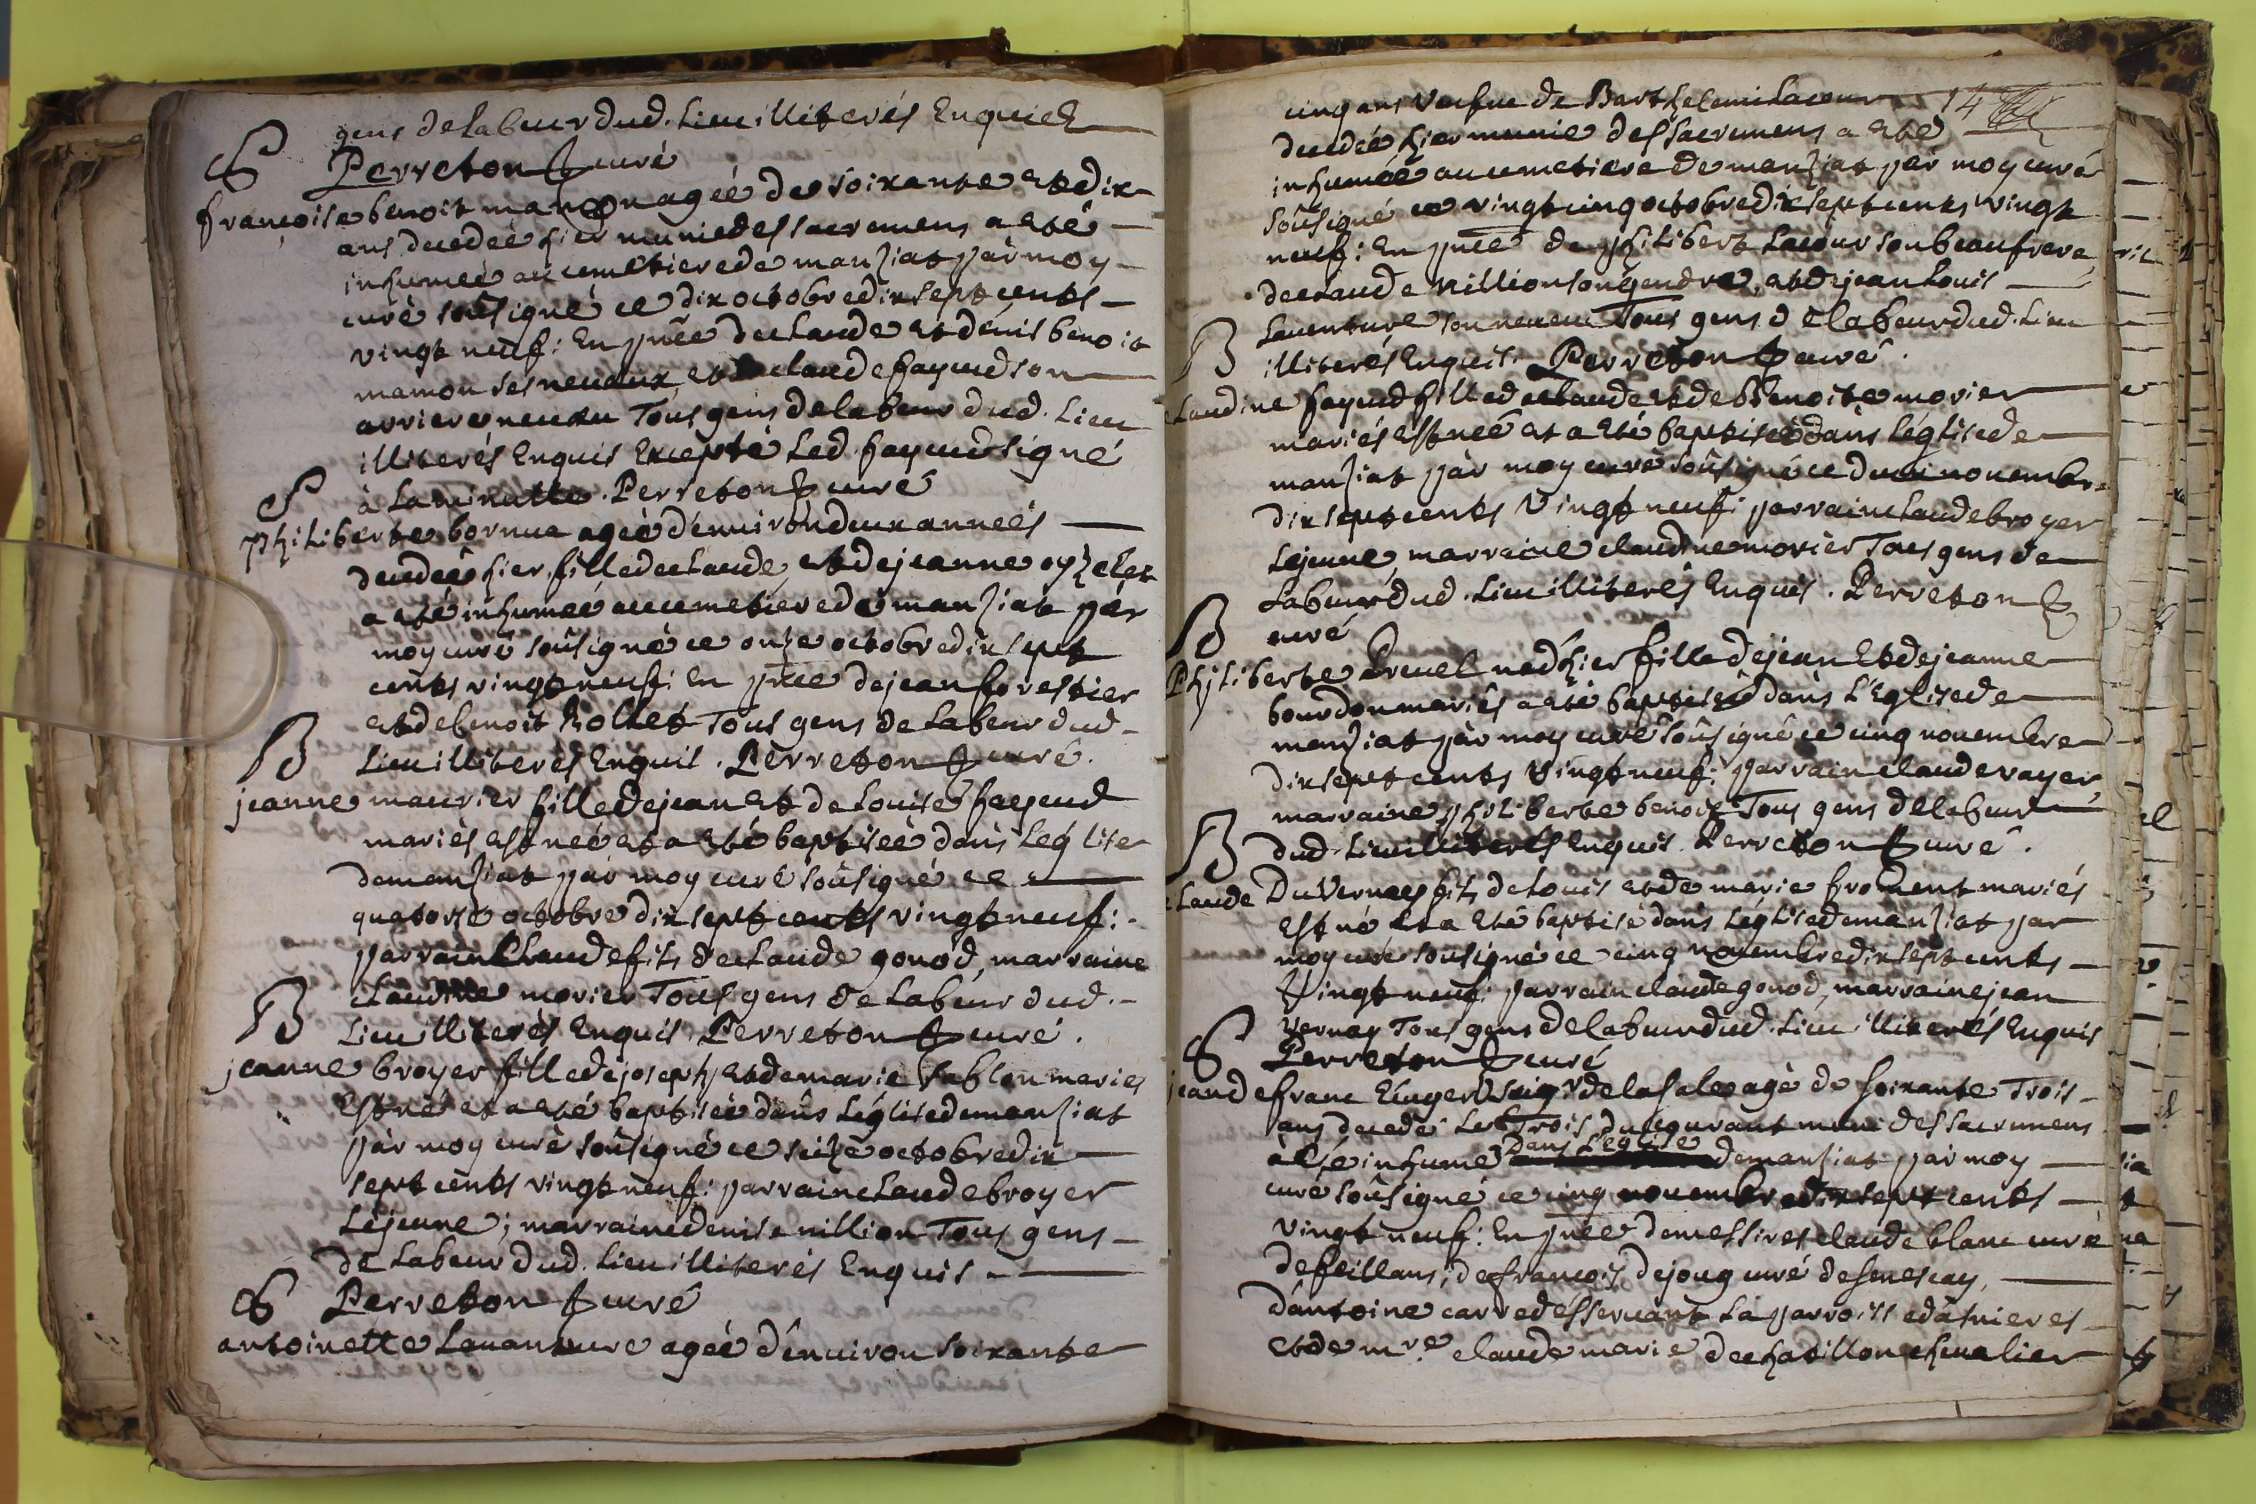 gens de labeur dud. lieu illiterés Enquiez
S Perreton curé
françoise benoit mamon ageé de soixante et dix
ans decedeé hier munie des sacremens a eté
inhumeé au cimetiere de manziat pàr moy
curé soûsigné ce dix octobre dix sept cents
vingt neuf: En pñce de claude et denis benoit
mamon ses neueux, et claude fayend son
arriere neueu Tous gens de labeur dud. lieu
illiterés Enquis Excepté led. fayend signé
à la minutte. Perreton curé
S
philiberte bornue ageé d'enuiron deux anneés
decedeé hier, fille de claude, et de jeanne oyzelet
a eté inhumeé au cimetiere de manziat pàr
moy curé soûsigné ce onze octobre dix sept
cents vingt neuf: En pñce de jean forestier
et de benoit Rollet Tous gens de labeur dud.
B lieu illiterés Enquis. Perreton curé.
jeanne maurier fille de jean et de Louise fayend
mariés est neé et a eté baptiseé dans léglise
de manziat pàr moy curé soûsigné ce
quatorse octobre dix sept cents vingt neuf:
parrain Claude fils de claude gonod, marraine
claudine morier Tous gens de labeur dud.
B lieu illiterés Enquis Perreton curé.
jeanne broyer fille de joseph, et de marie sablon mariés
Est neé et a eté baptiseé dans léglise de manziat
pàr moy curé soûsigné ce seize octobre dix
sept cents vingt neuf: parrain claude broyer
lejeune; marraine denise nillion Tous gens
de labeur dud. lieu illiterés Enquis
S Perreton curé
antoinette lauanture ageé d'enuiron soixante
14
cinq ans veufue de Barthelemi lacour
decedeé hier munie des sacremens a eté
inhumeé au cimetiere de manziat pàr moy curé
soûsigné ce vingt cinq octobre dix sept cents vingt
neuf: En pñce de philibert lacour son beaufrere,
de claude nillion son gendre, et de jean Louis
lauenture son neueu Tous gens de labeur dud. lieu
B illiterés Enquis. Perreton curé.
claudine fayend fille de claude et de Benoite morier
mariés est neé et a eté baptiseé dans léglise de
manziat pàr moy curé soûsigné ce deux nouembre
dix sept cents vingt neuf: parrain claude broyer
lejeune, marraine claudine morier Tous gens de
labeur dud. lieu illiterés Enquis. Perreton
B curé
Philiberte Preuel neé hier fille de jean Et de jeanne
bourdon mariés a eté baptiseé dans l'Eglise de
manziat pàr moy curé soûsigné ce cinq nouembre
dix sept cents vingt neuf: parrain claude rayer,
marraine philiberte benoit Tous gens de labeur
B dud. lieu illiterés Enquis. Perreton curé.
claude Duvernay fils de Louis et de marie froment mariés
Est né, et a eté baptisé dans léglise de manziat par
moy curé soûsigné ce cinq nouembre dix sept cents
vingt neuf: parrain claude gonod, marraine jean
vernay Tous gens de labeur dud. lieu illiterés Enquis
S Perreton curé
jean de franc seigr de la sale agé de soixante Trois
ans decedé le Trois du courant muni des sacremens
à eté inhumé dans l'église de manziat pàr moy
curé soûsigné ce cinq nouembre dix sept cents
vingt neuf: En pñce de messires claude blanc curé
de feillans, de françois dejoug curé de senescay,
d'antoine carre désseruant la parroisse d'asnieres
et de mre claude marie de chatillon cheualier